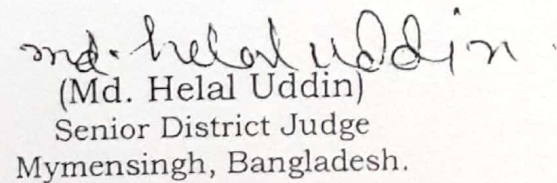 md. helal uddin.
(Md. Helal Uddin)
Senior District Judge
Mymensingh, Bangladesh.